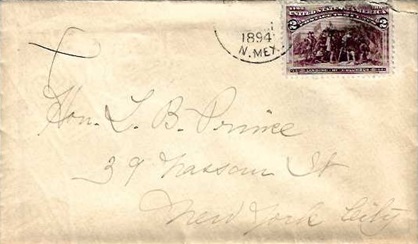 1894
N. MEX.
2 UNITED STATES OF AMERICA 2
Hon. L. B. Prince
39 Nassau St
New York City